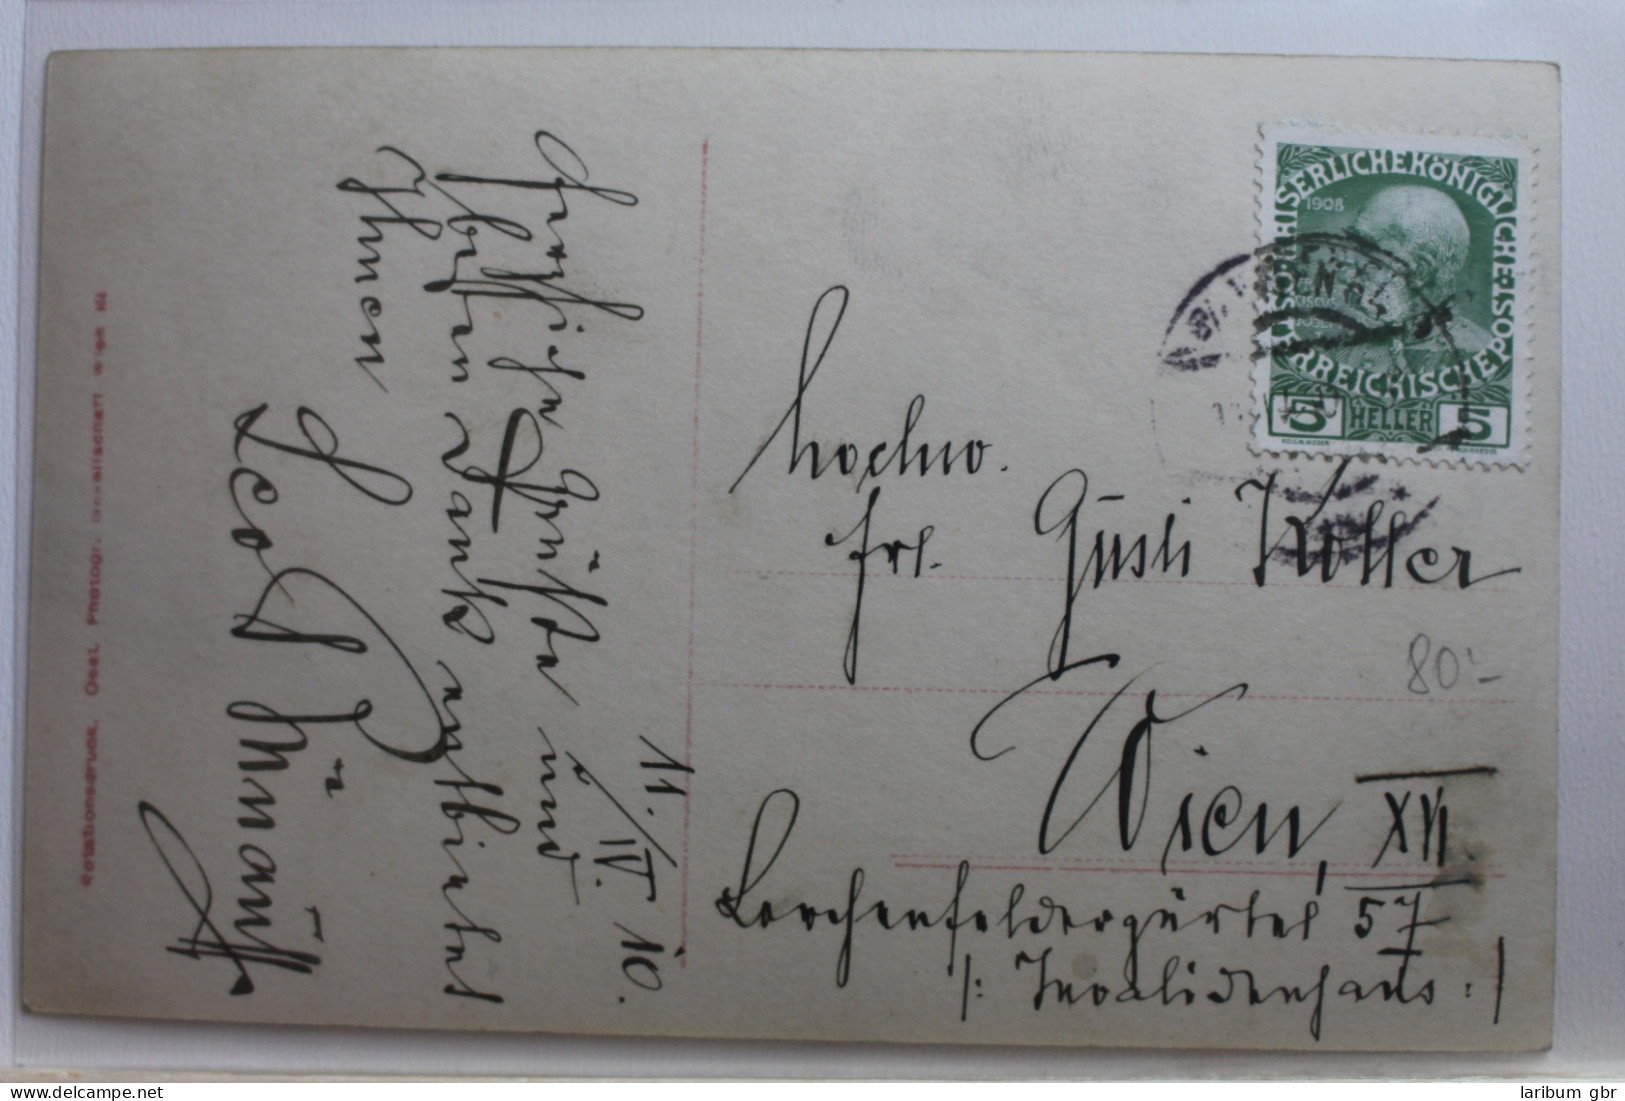 Herzliche Grüße und
besten Dank entbietet
Ihnen
Leo
11./IV. 10.
Rotationsdruck. Oest. Photogr. Gesellschaft Wien III
KAISERLICHE KÖNIGLICHE
ÖSTERREICHISCHE POST
1908
5 HELLER 5
hochwo.
Frl. Gusti Koller
Wien, XVI.
Lerchenfeldergürtel 57
/: Invalidenhaus :/
80.-
laribum gbr